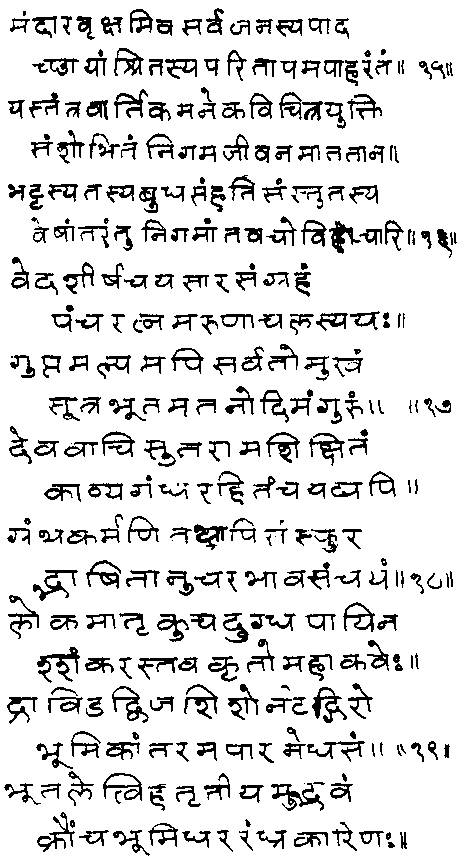 मंदारवृक्षमिव सर्वजनस्य पाद
च्छायांश्रितस्य परितापमपाहरंतं॥ १५॥
यस्तंत्रवार्तिकमनेकविचित्रयुक्ति
संशोभितं निगमजीवनमाततान॥
भट्टस्य तस्य बुधसंहतिसंस्तुतस्य
वेषांतरंतु निगमांतवचो विचारि॥ १६॥
वेदशीर्षचयसारसंग्रहं
पंचरत्नमरुणाचलस्य यः॥
गुप्तमल्पमपि सर्वतोमुखं
सूत्रभूतमतनोदिमंगुरुं॥ ॥१७
देववाचि सुतरामशिक्षितं
काव्यगंधरहितंच यद्यपि॥
ग्रंथकर्मणि तथापि संस्फुर
द्भाषितानुचरभावसंचयं॥१८॥
लोकमातृकुचदुग्धपायिन
श्शंकरस्तवकृतो महाकवेः॥
द्राविडद्विजशिशोर्नटद्गिरो
भूमिकांतरमपारमेधसं॥ ॥१९॥
भूतले त्विह तृतीयमुद्भवं
क्रौंचभूमिधररंध्रकारिणः॥